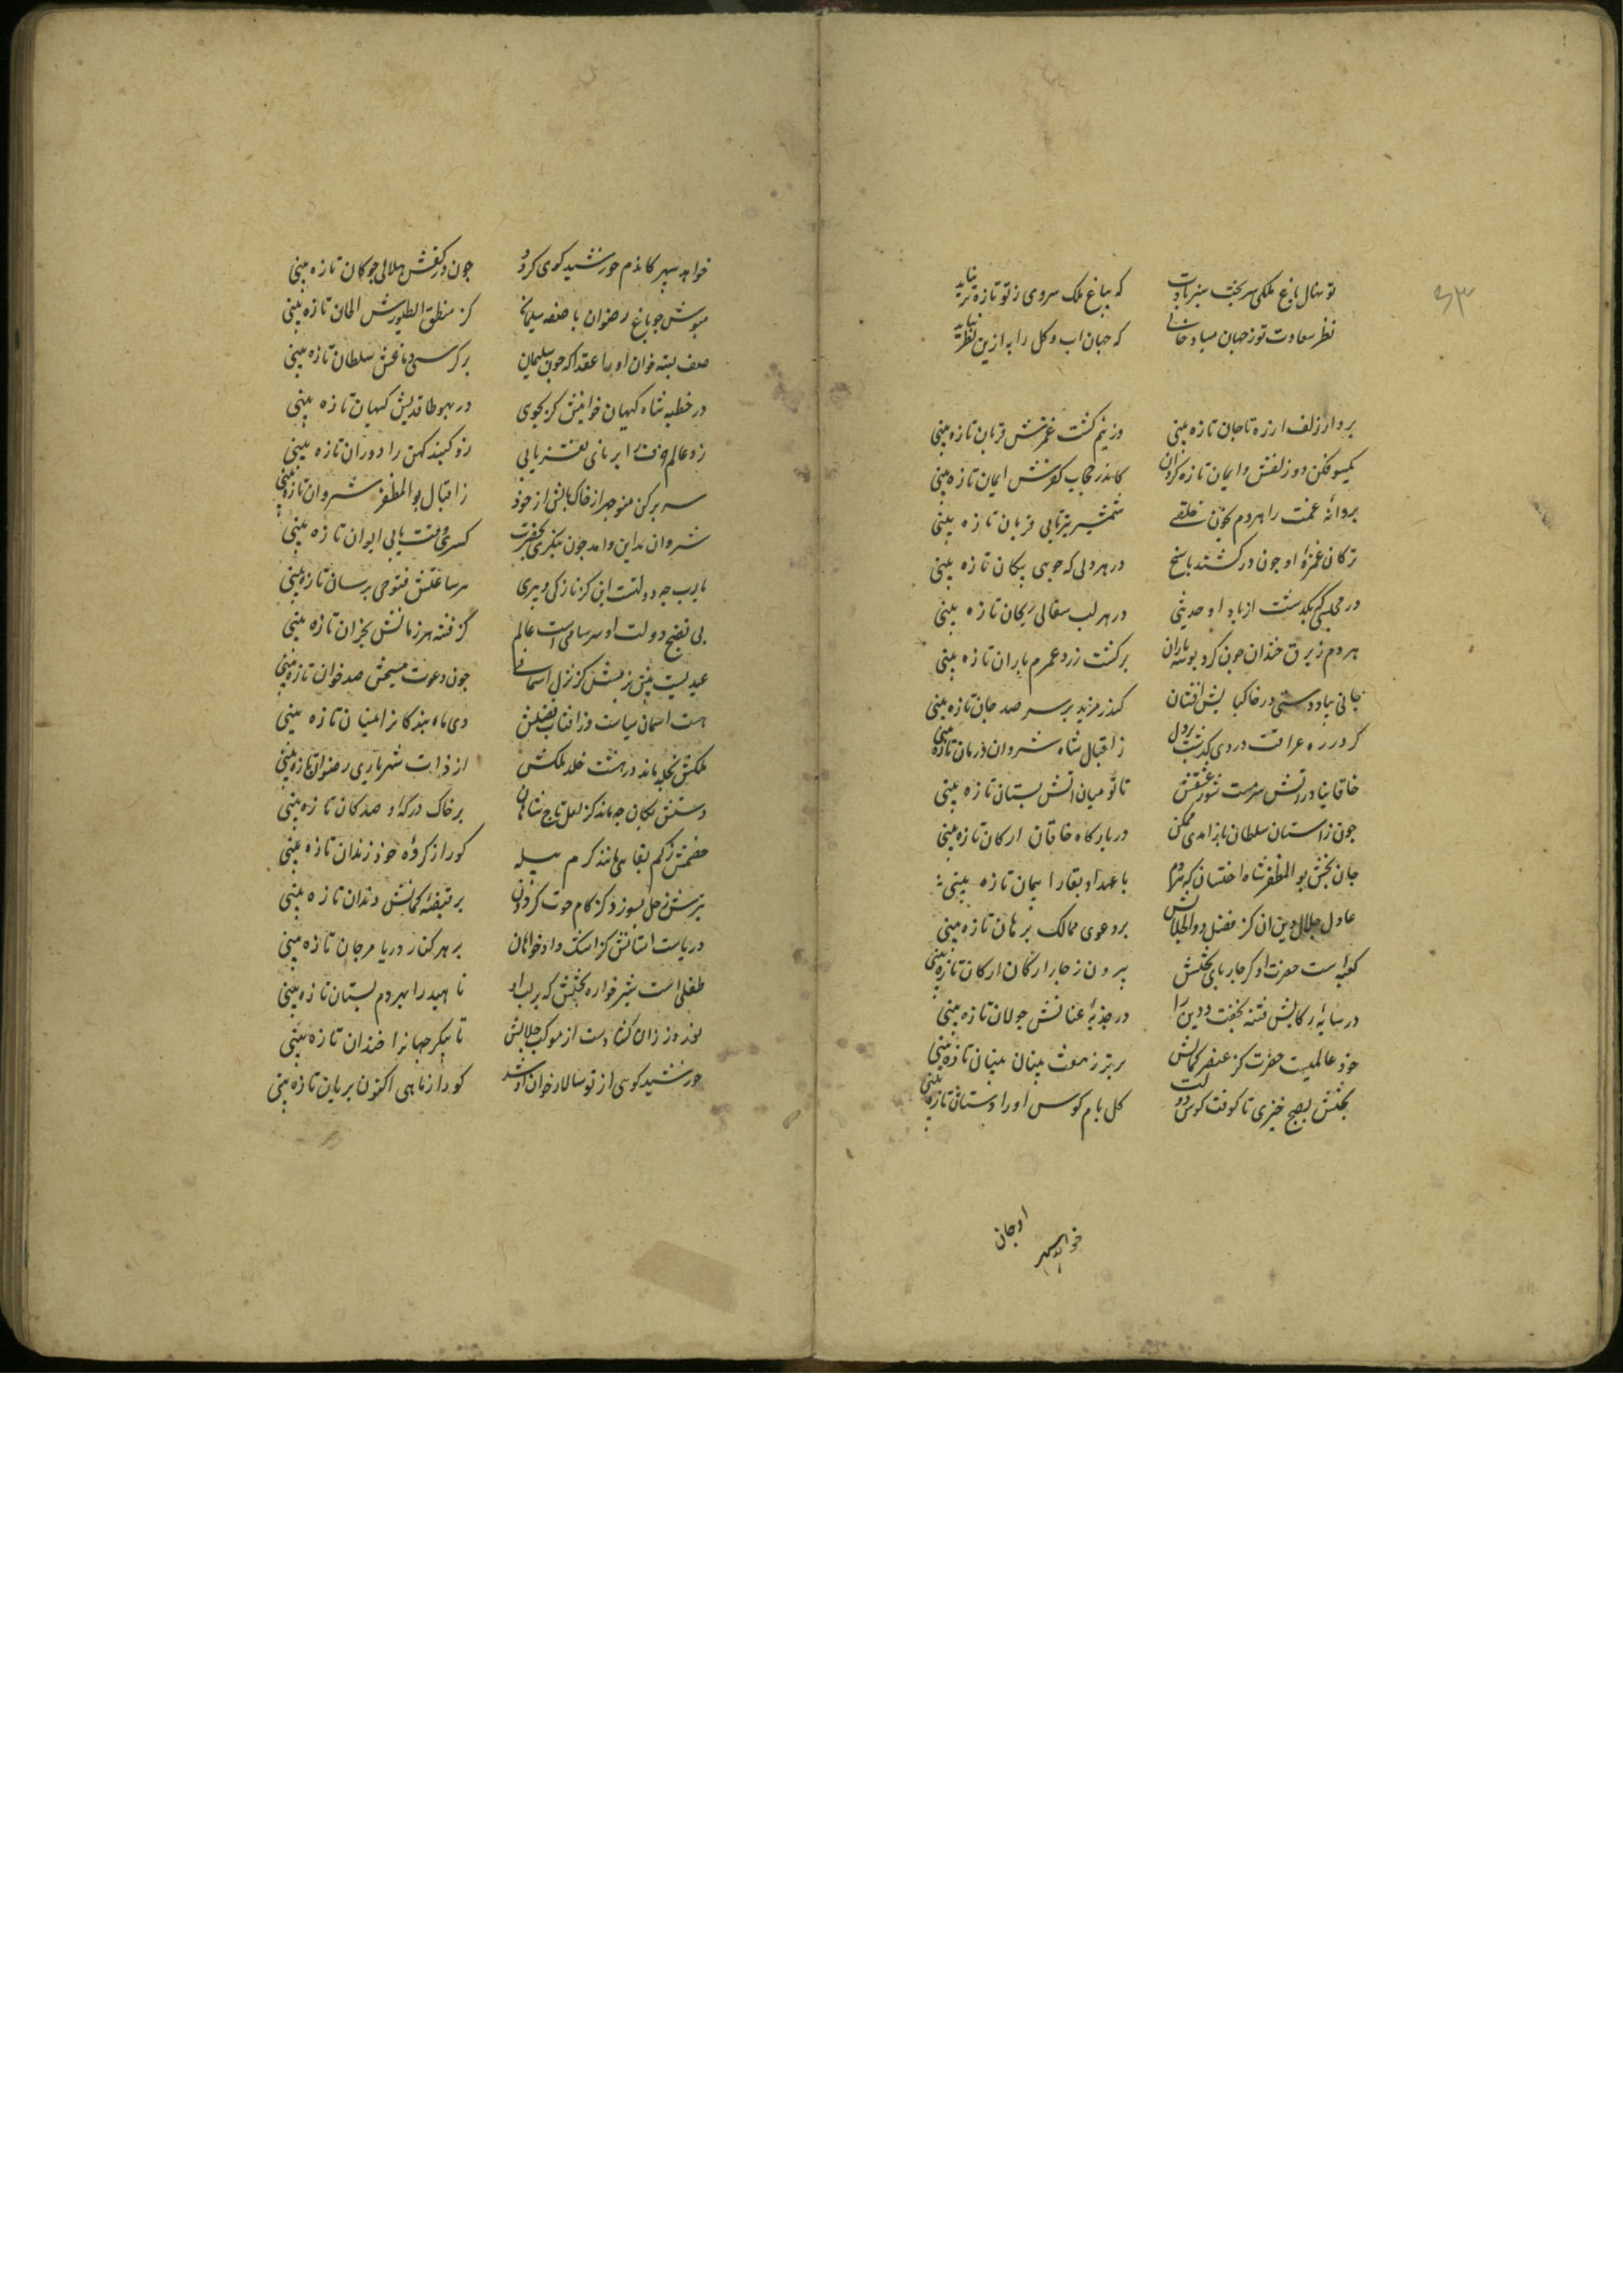 تو نهال باغ ملکی سر بخت سبز بادت که بباغ ملک سروی ز تو تازه تر نیاید
نظر سعادت تو ز جهان مبادا خالی که جهان اب و کل را به ازین نظر نیاید
بردار زلف از رخ تا جان تازه بینی وز نیم کشت غمزش قربان تازه بینی
یکسو فکن دو زلفش و ایمان تازه کردان کاندر حجاب کفرش ایمان تازه بینی
پروانه غمت را هر دم بخون خلقی شمشیر بزتابی قربان تازه بینی
ترکان غمزه او چون درکشند یاسج در هر دلی که جویی پیکان تازه بینی
در مجلسی که بگذشت از یاد او حدیثی در هر لب سفالی ریحان تازه بینی
هر دم ز برق خندان چون کرد بوسه باران بر کشت زرد عمرم باران تازه بینی
جانی بیاد دستی در خاکپایش افشان کندر مزید بر سر صد جان تازه بینی
گر در ره عراقت دردی گذشت بر دل ز اقبال شاه شروان درمان تازه بینی
خاقانیا در اتش سرمست شو ز عشقش تا تو میان اتش بستان تازه بینی
چون ز استان سلطان باز امدی ممکن در بارکاه خاقان ارکان تازه بینی
جان بخش بو المظفر شاه اخستان که هر دم با عهد او بقا را پیمان تازه بینی
عادل جلال دین ان کز فضل ذو الجلالش بر دعوی ممالک برهان تازه بینی
کعبه است حضرت او کز چار پای تختش بیرون ز چار ارکان ارکان تازه بینی
در سایه رکابش فتنه بخفت و دین را در جذبه عنانش جولان تازه بینی
خود عالمیست حضرت کز عنصر کمالش برتر ز هفت بنیان بنیان تازه بینی
بختش بصبح خیزی تا کوفت کوس دولت کلبام کوس او را دستان تازه بینی
خواهد سپهر
خواهد سپهر کاندم خورشید کوی کردد چون در کفش هلالی چوکان تازه بینی
مینوش چو باغ رضوان با صفه سلیمان کز منطق الطیورش الحان تازه بینی
صف بسته خوان او را عقدا که چون سلیمان بر کرسی دماغش سلطان تازه بینی
در خطبه شاه کیهان خوانیش کر بجوی در هبوطا قدیش کیهان تازه بینی
زو عالم کهن را دوران تازه بینی
سر برکن منوچهر از خاک بالش از خود ز اقبال بو المظفر شروان تازه بینی
شروان مداین وامد چون بنکری بحضرت کسری وقت یابی ایوان تازه بینی
یارب چه دولتست این کز نازکی و پیری هر ساعتش فتوحی برسان تازه بینی
بی نضج دولت او سرسامی است عالم کز فتنه هر زمانش بحران تازه بینی
عیدیست پیش بزمش کز نزل اسمانی چون دعوت مسیحش صد خوان تازه بینی
هست اسمان سیاست وز افتاب فضلش دی ماه بندکان را نیسان تازه بینی
ملکش بخلد ماند در هشت خلد ملکش از ذات شهریاری رضوان تازه بینی
دستش بکان چه ماند کز لعل تاج شاهان بر خاک درکه او صد کان تازه بینی
خصمش ز کم بقایی ماند کرم پیله کورا ز کرده خود زندان تازه بینی
تیرش زحل بسوزد کز کام حوت کردون بر قبضه کمانش دندان تازه بینی
دریاست استانش کز اشک دادخواهان بر هر کنار دریا مرجان تازه بینی
طفلی است شیرخواره بختش که بر لب او ناهید را بهر دم بستان تازه بینی
نوروز زان کشادست از موکب جلالش تا پیکر جهانرا خندان تازه بینی
خورشید کوسی از تو سالار خوان او شد کورا ز ماهی اکنون بریان تازه بینی